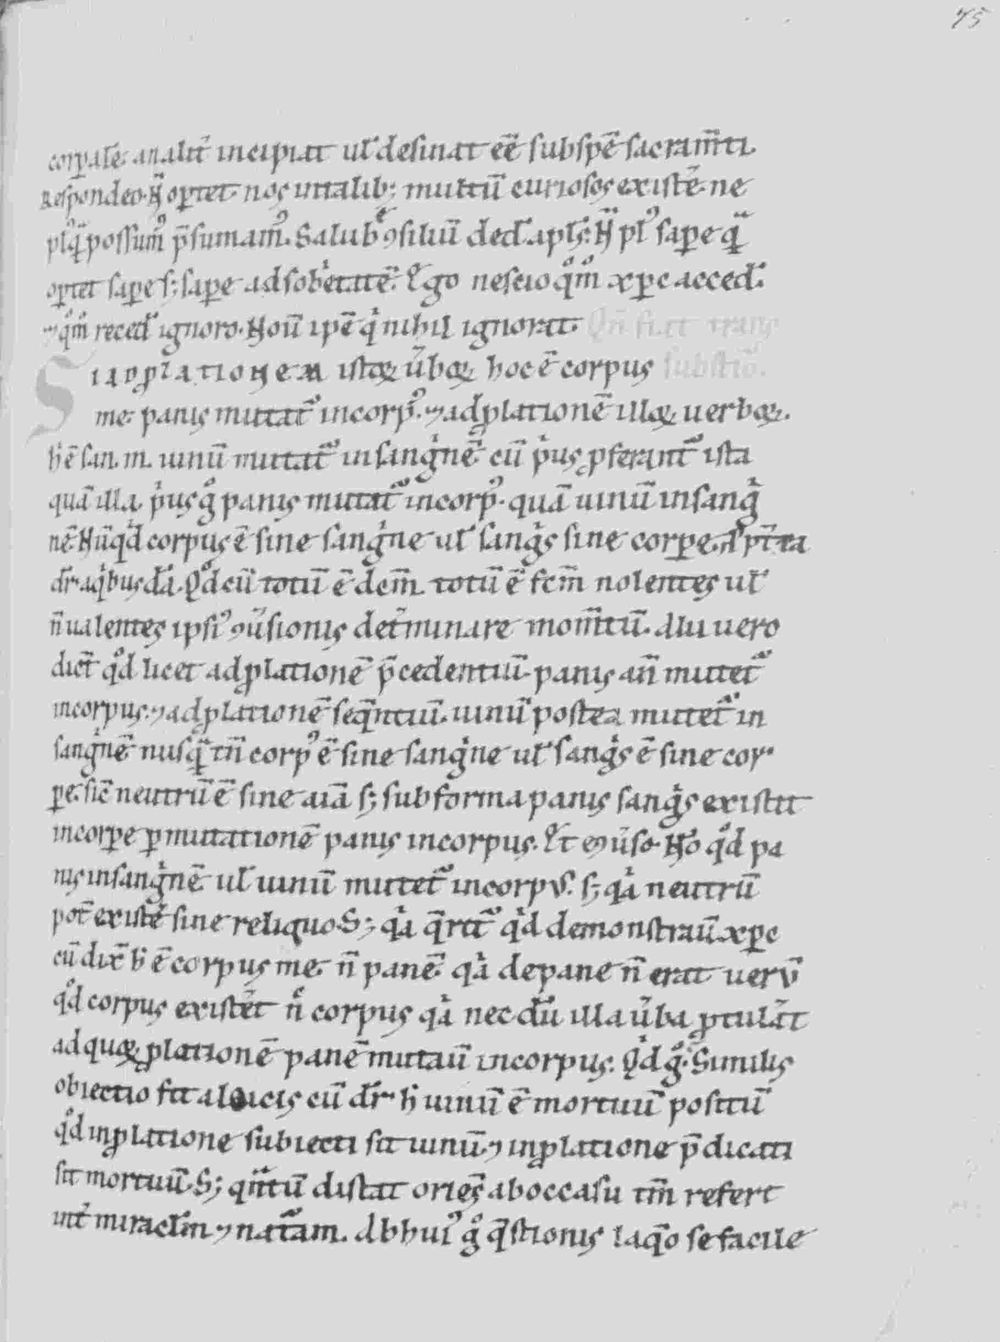 75
corꝑalē. an alit᷑ incipiat ul̓ desinat eē̄ sub spē̄ sacram̄ti.
Respondeo. N̄ oꝑtet nos in talib; multū curiosos existe᷑. ne
pl̓q̄ possum᷒ p̄sumam᷒. Salubre ꝯsiliū ded̓ apl̓s. N̄ pl᷒ sapere q̄
oꝑtet saꝑe s; saꝑe ad sobrietatē. Ego nescio qͦm̄ xp̄c acced̓.
⁊ qͦm̄ reced̓ ignoro. Nouit ip̄e qͥ nihil ignorat. Qn̄ fiat trans
SI ad ꝓlationem istoꝝ ūboꝝ hoc ē corpus substātio.
me. panis mutat᷑ in corp᷒. ⁊ ad ꝓlationē illoꝝ uerboꝝ.
h̄ ē san. m. uinū mutat᷑ in sangͥnē. cū pͥus ꝓferant᷑ ista
quā illa. pͥus gͦ panis mutat᷑ in corp᷒. quā uinū in sangͥ
nē. Nūqͥd corpus ē sine sangͥne ul̓ sangͥs sine corꝑe. Apt̄ta
dr̄ a qͥbusdā. Qͦd cū totū ē dcm̄ totū ē fcm̄ nolentes ul̓
n̄ ualentes ipsi᷒ ꝯūsionis det᷑minare mom̄tū. Alii uero
dict̄ qͦd licet ad ꝓlationē p̄cedentiū panis an̄ mutet᷑
in corpus. ⁊ ad ꝓlationē seq̄ntiū. uinū postea mutet᷑ in
sangͥnē nusq̄ tn̄ corp᷒ ē sine sangͥne ul̓ sangͥs ē sine cor
ꝑe. sic neutrū ē sine aīa s; sub forma panis sangͥs existit
in corꝑe ꝑ mutationē panis in corpus. Et e ꝯūso. Nō qͦd pa
nis in sangͥnē. ul̓ uinū mutet᷑ in corpus. s; qͥa neutrū
pot̄ existe᷑ sine reliquo. S; qͥa q̄rit᷑ qͥd demonstrauit xp̄c
cū dix̄ h̄ ē corpus me. n̄ panē. qͥa de pane n̄ erat uerū
qͦd corpus existe᷑t n̄ corpus qͥa nec dū illa ūba ꝓtulāt
ad quoꝝ ꝓlationē panē mutauit in corpus. Qͥd gͦ. Similis
obiectio fit a laicis cū dr̄. h̄ uinū ē mortuū positū
qͦd in ꝓlatione subiecti sit uinū. ⁊ in ꝓlatione p̄dicati
sit mortuū. S; qͣntū distat oriēs ab occasu tm̄ refert
int᷑ miracl̓m ⁊ nat᷑am. Ab hui᷒ gͦ q̄stionis laqͦo se facile